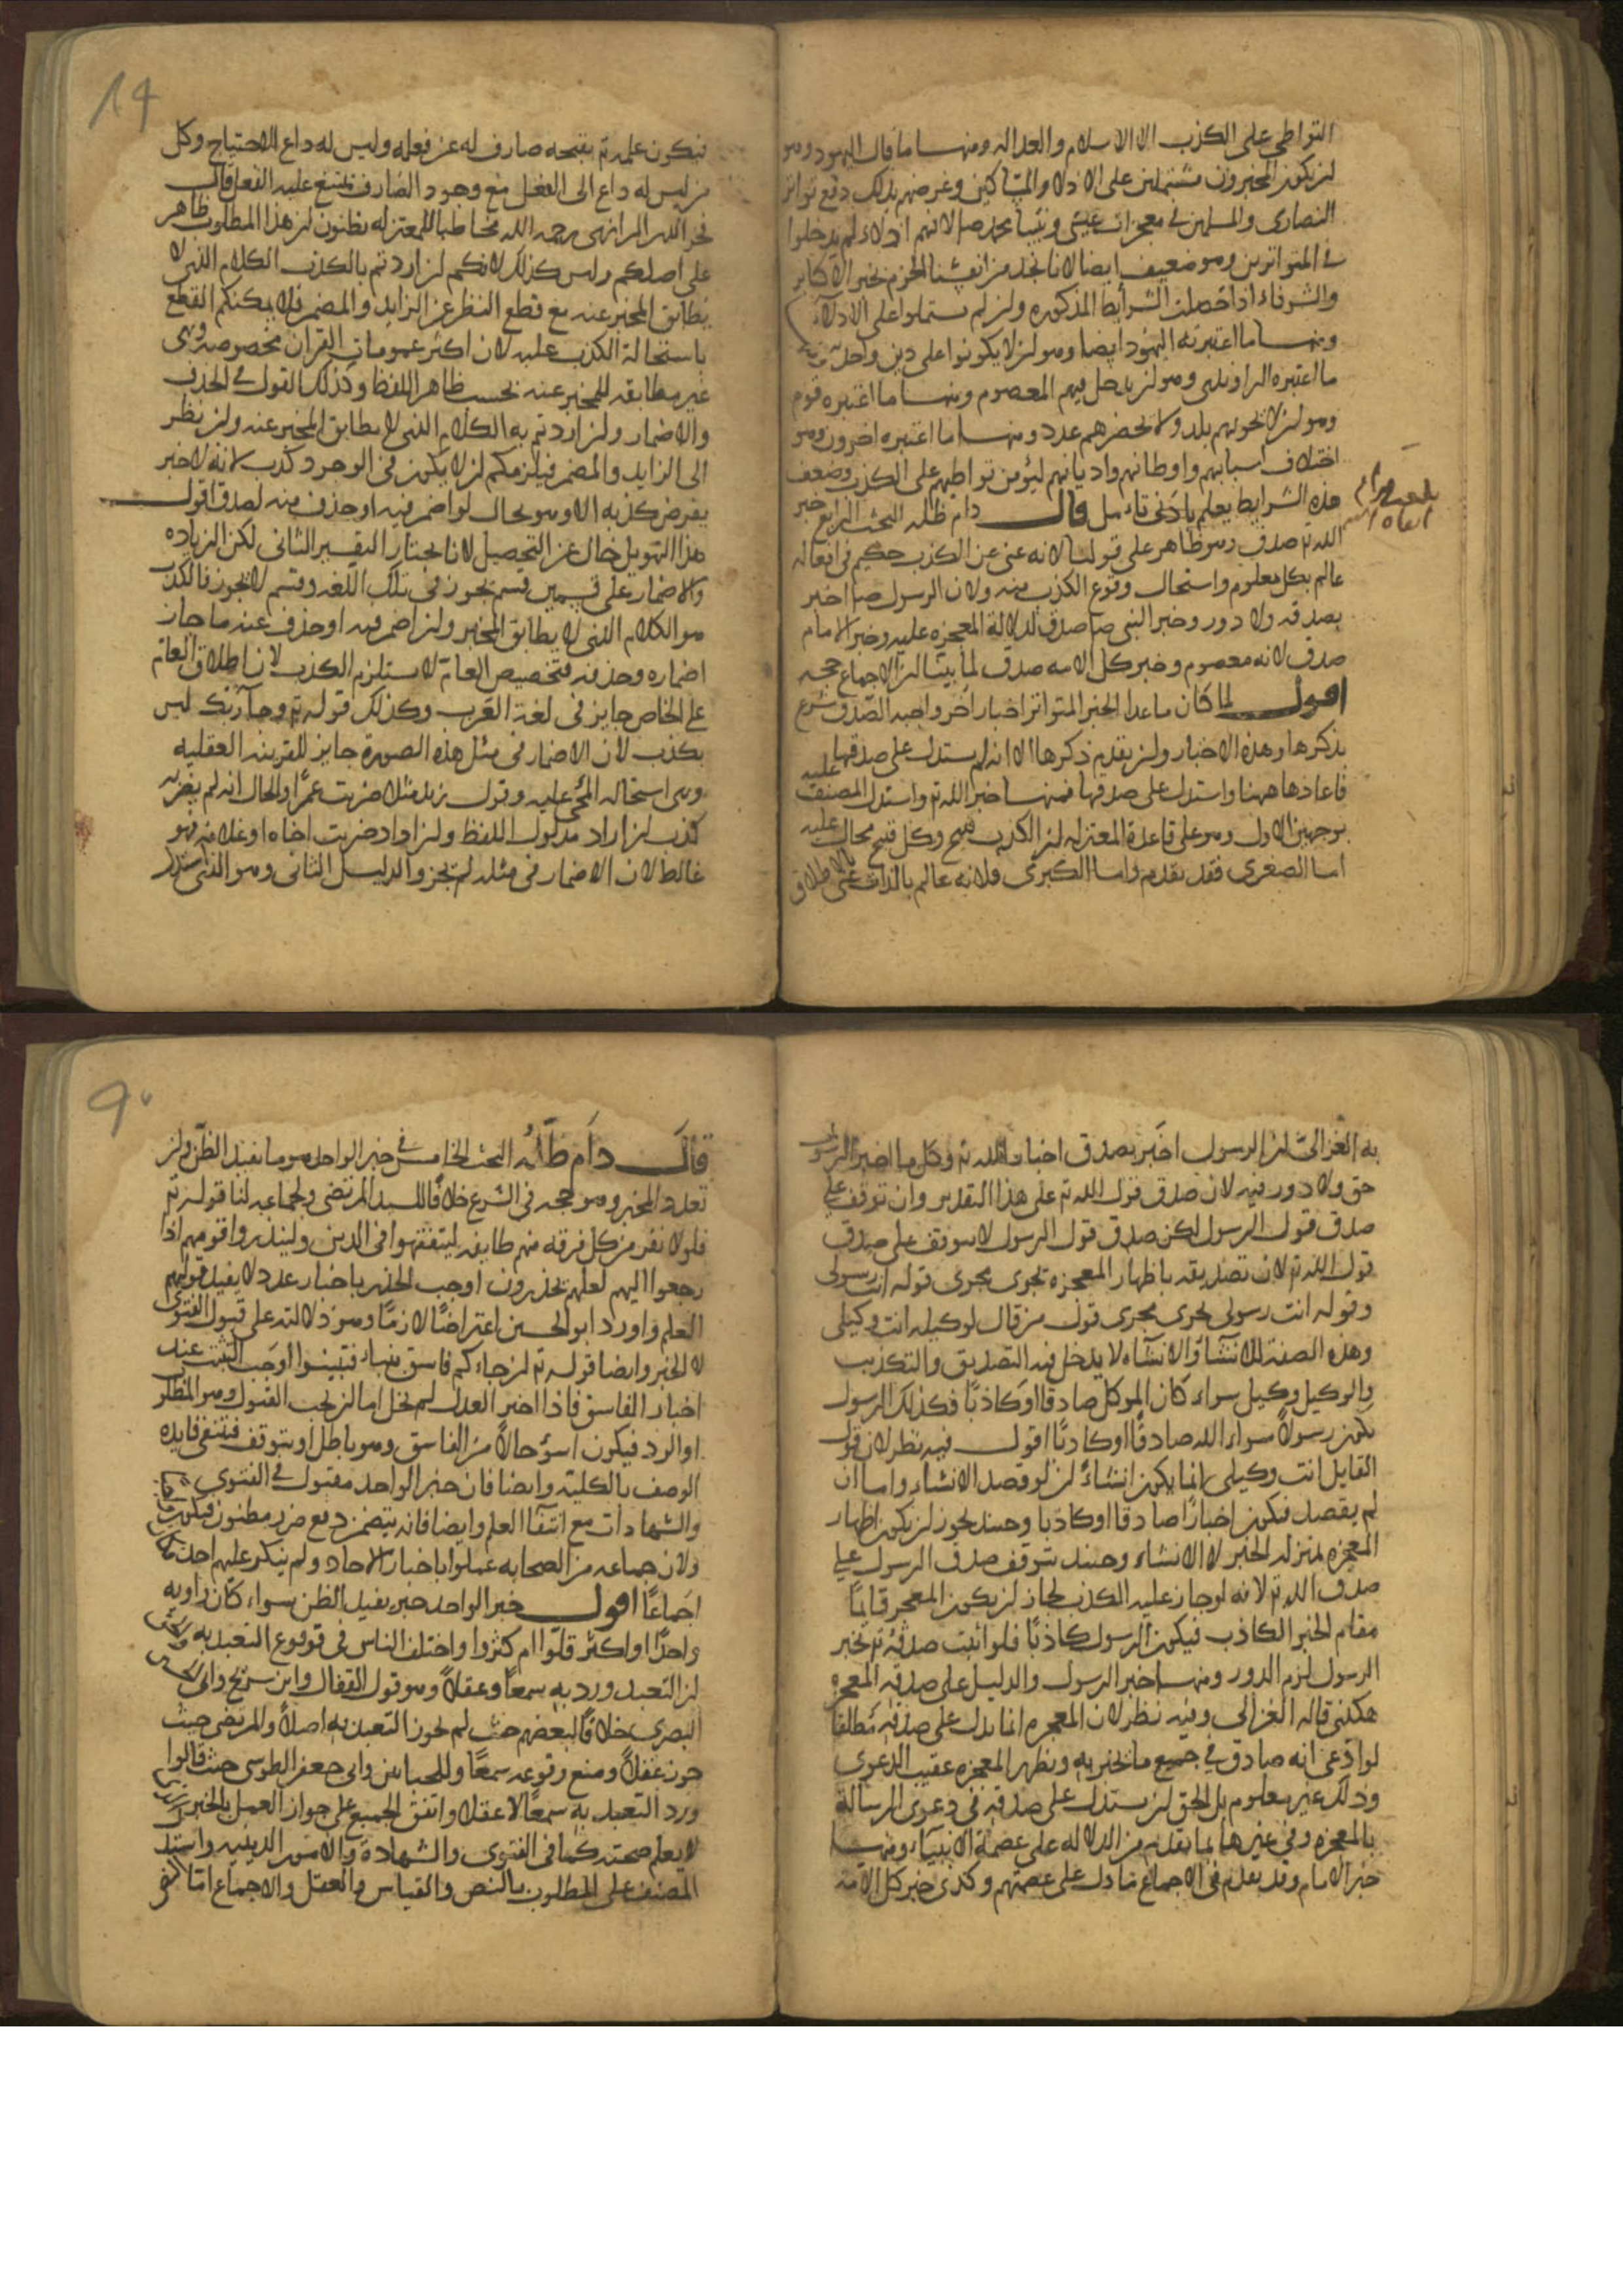 التواطي على الكذب الا الاسلام والعداله ومنها ما قال اليهود وهو
ان يكون المخبرون مشتملين على الاذلاء والمساكين وغرضهم بذلك دفع تواتر
النصارى والمسلمين في معجزات عيسى ونبينا محمد صلى لانهم اذلاء لم يدخلوا
في المتواترين وهو ضعيف ايضا لانا نجد من انفسنا الجزم بخبر الاكابر
والشرفاء اذا حصلت الشرايط المذكوره وان لم يشتملوا على الاذلاء
ومنها ما اعتبرته اليهود ايضا وهو ان لا يكونوا على دين واحد ومنها
ما اعتبره الراوندي وهو ان يدخل فيهم المعصوم ومنها ما اعتبره قوم
وهو ان لا يحويهم بلد ولا يحصرهم عدد ومنها ما اعتبره اخرون وهو
اختلاف انسابهم واوطانهم واديانهم ليؤمن تواطيهم على الكذب وضعف
هذه الشرايط يعلم بادنى تامل قال دام ظله البحث الرابع خبر
الله تع صدق وهو ظاهر على قولنا لانه غني عن الكذب حكيم في افعاله
عالم بكل معلوم واستحال وقوع الكذب منه ولان الرسول ص اخبر
بصدقه ولا دور وخبر النبي ص صدق لدلالة المعجزه عليه وخبر الامام
صدق لانه معصوم وخبر كل الامه صدق لما بينا ان الاجماع حجه
اقول لما كان ما عدا الخبر المتواتر اخبار اخر واجبه الصدق شرع
بذكرها وهذه الاخبار وان تقدم ذكرها الا انه لم يستدل على صدقها
فاعادها ههنا واستدل على صدقها فمنها خبر الله تع واستدل المصنف عليه
بوجهين الاول وهو على قاعدة المعتزله ان الكذب قبيح وكل قبيح محال عليه
اما الصغرى فقد تقدم واما الكبرى فلانه عالم بالذات غني بالاطلاق
فيكون علمه تع بقبحه صارف له عن فعله وليس له داع للاحتياج وكل
من ليس له داع الى الفعل مع وجود الصارف يمتنع عليه الفعل قال
فخر الدين الرازي رحمه الله مخاطبا للمعتزله تظنون ان هذا المطلوب ظاهر
على اصلكم وليس كذلك لانكم ان اردتم بالكذب الكلام الذي لا
يطابق المخبر عنه مع قطع النظر عن الزايد والمضمر فلا يمكنكم القطع
باستحالة الكذب عليه لان اكثر عمومات القران مخصوصه وهي
غير مطابقه للمخبر عنه بحسب ظاهر اللفظ وكذلك القول في الحذف
والاضمار وان اردتم به الكلام الذي لا يطابق المخبر عنه وان نظر
الى الزايد والمضمر فيلزمكم ان لا يكون في الوجود كذب لانه لا خبر
يفرض كذبه الا وهو بحال لو اضمر فيه او حذف منه لصدق اقول
هذا التهويل خال عن التحصيل لانا نختار التفسير الثاني لكن الزياده
والاضمار على قسمين قسم يجوز في تلك اللغه وقسم لا يجوز فالكذب
هو الكلام الذي لا يطابق المخبر وان اضمر فيه او حذف عنه ما جاز
اضماره وحذفه فتخصيص العام لا يستلزم الكذب لان اطلاق العام
على الخاص جايز في لغة العرب وكذلك قوله تع وجاء ربك ليس
بكذب لان الاضمار في مثل هذه الصوره جايز للقرينه العقليه
وهي استحاله المجي عليه وقول زيد مثلا ضربت عمرا والحال انه لم يضربه
كذب ان اراد مدلول اللفظ وان اراد ضربت اخاه او غلامه فهو
غالط لان الاضمار في مثله لم يجز والدليل الثاني وهو الذي استدل
به الغزالي ان الرسول اخبر بصدق اخبار الله تع وكل ما اخبر الرسول
حق ولا دور فيه لان صدق قول الله تع على هذا التقدير وان توقف على
صدق قول الرسول لكن صدق قول الرسول لا يتوقف على صدق
قول الله تع لان تصديقه باظهار المعجزه تجري مجرى قوله انت رسولي
وقوله انت رسولي يجري مجرى قول من قال لوكيله انت وكيلي
وهذه الصفة للانشاء والانشاء لا يدخل فيه التصديق والتكذيب
والوكيل وكيل سواء كان الموكل صادقا او كاذبا فكذلك الرسول
يكون رسولا سواء الله صادقا او كاذبا اقول فيه نظر لان قول
القايل انت وكيلي انما يكون انشاء ان لو قصد الانشاء واما ان
لم يقصد فيكون اخبارا صادقا او كاذبا وحينئذ يجوز ان يكون اظهار
المعجزه بمنزله الخبر لا الانشاء وحينئذ يتوقف صدق الرسول على
صدق الله تع لانه لو جاز عليه الكذب لجاز ان يكون المعجز قايما
مقام الخبر الكاذب فيكون الرسول كاذبا فلو اثبت صدقه تع بخبر
الرسول لزم الدور ومنها خبر الرسول والدليل على صدقه المعجزه
هكذى قاله الغزالي وفيه نظر لان المعجزه انما يدل على صدقه مطلقا
لو ادعى انه صادق في جميع ما يخبر به وتظهر المعجزه عقيب الدعوى
وذلك غير معلوم بل الحق ان يستدل على صدقه في دعوى الرسالة
بالمعجزه وفي غيرها بما تقدم من الدلاله على عصمة الانبياء ومنها
خبر الامام وقد تقدم في الاجماع ما دل على عصمتهم وكذى خبر كل الامه
قال دام ظله البحث الخامس في خبر الواحد هو ما يفيد الظن وان
تعدد المخبر وهو حجه في الشرع خلافا للسيد المرتضى ولجماعه لنا قوله تع
فلولا نفر من كل فرقه منهم طايفه ليتفقهوا في الدين ولينذروا قومهم اذا
رجعوا اليهم لعلهم يحذرون اوجب الحذر باخبار عدد لا يفيد قولهم
العلم واورد ابو الحسين اعتراضا لازما وهو دلالته على قبول الفتوى
لا الخبر وايضا قوله تع ان جاءكم فاسق بنباء فتبينوا اوجب التثبت عند
اخبار الفاسق فاذا اخبر العدل لم يخل اما ان يجب القبول وهو المطلوب
او الرد فيكون اسؤ حالا من الفاسق وهو باطل او يتوقف فتنتفي فايده
الوصف بالكلية وايضا فان خبر الواحد مقبول في الفتوى
والشهادات مع انتفاء العلم وايضا فانه يتضمن دفع ضرر مظنون فيكون
ولان جماعه من الصحابه عملوا باخبار الاحاد ولم ينكر عليهم احد فكان
اجماعا اقول خبر الواحد خبر يفيد الظن سواء كان راويه
واحدا او اكثر قلوا ام كثروا واختلف الناس في وقوع التعبد به والحق
ان التعبد ورد به سمعا وعقلا وهو قول القفال وابن سريج وابي الحسين
البصري خلافا لبعضهم حيث لم يجوز التعبد به اصلا والمرتضى حيث
جوز عقلا ومنع وقوعه سمعا وللجبائين وابي جعفر الطوسي حيث قالوا
ورد التعبد به سمعا لا عقلا واتفق الجميع على جواز العمل بالخبر الذي
لا يعلم صحته كما في الفتوى والشهادة والامور الدينيه واستدل
المصنف على المطلوب بالنص والقياس والعقل والاجماع اما النص